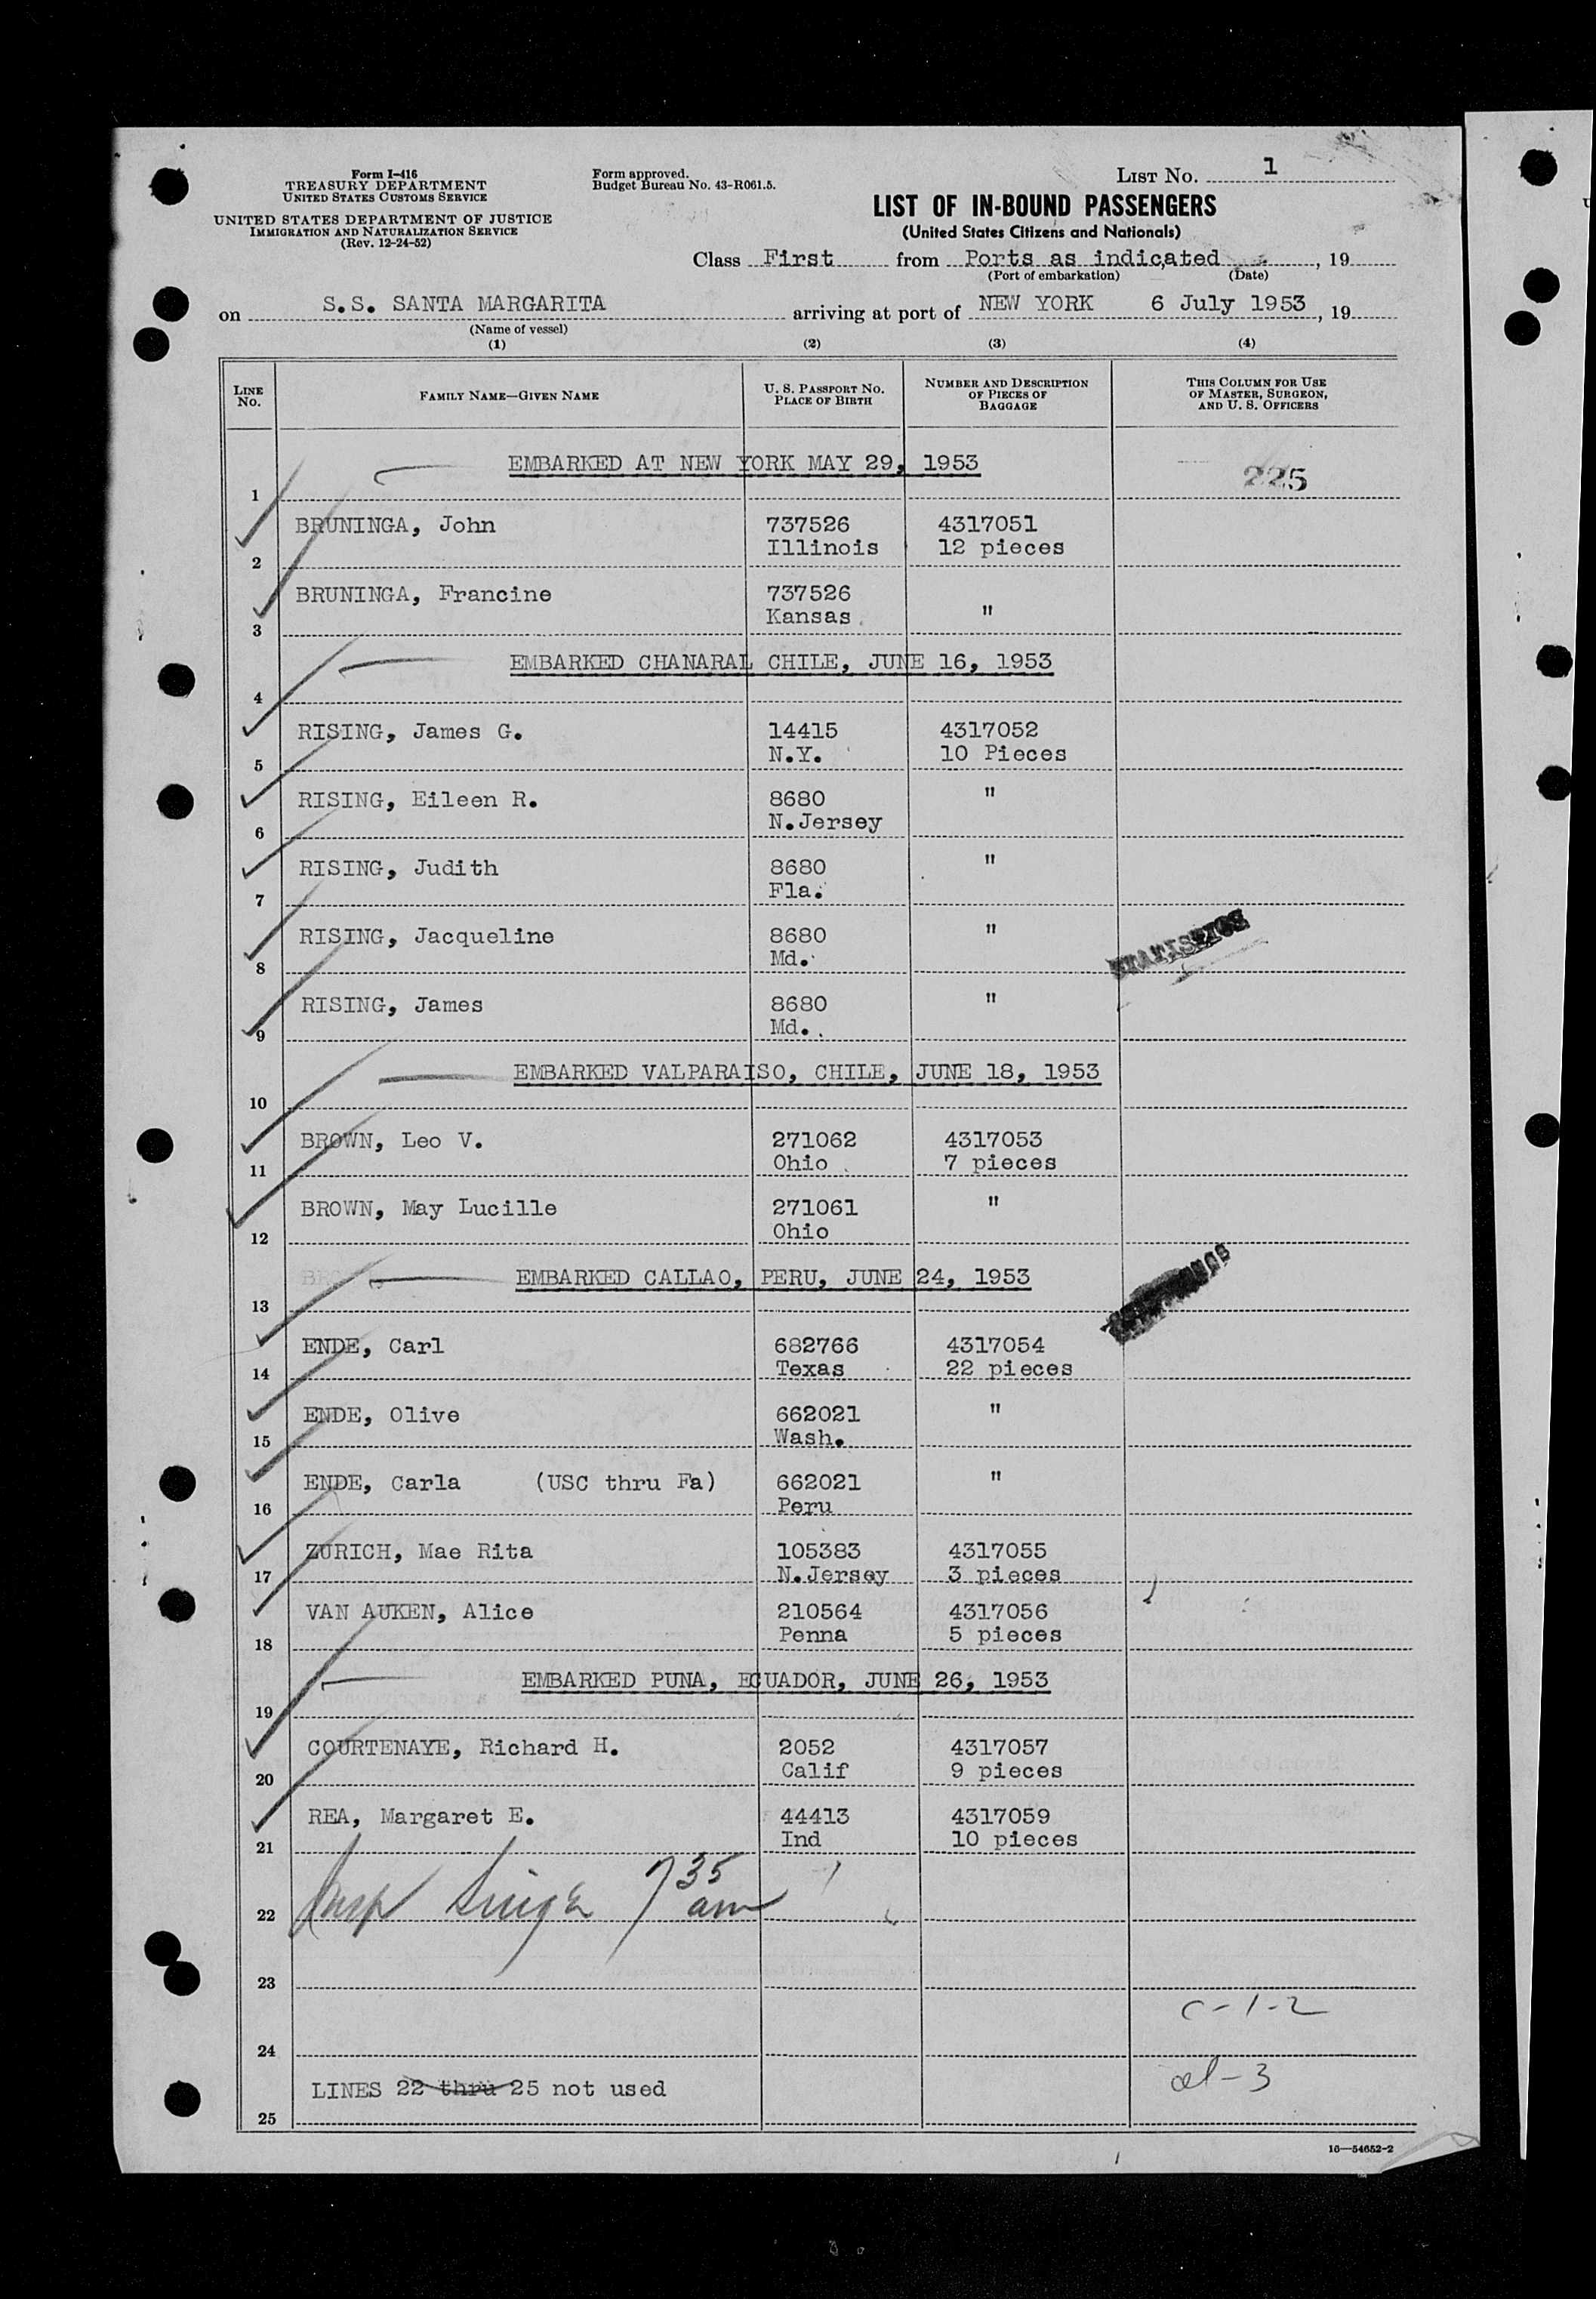 Form I-416
TREASURY DEPARTMENT
UNITED STATES CUSTOMS SERVICE
UNITED STATES DEPARTMENT OF JUSTICE
IMMIGRATION AND NATURALIZATION SERVICE
(Rev. 12-24-52)
Form approved.
Budget Bureau No. 43-R061.5.
LIST No. 1
LIST OF IN-BOUND PASSENGERS
(United States Citizens and Nationals)
Class First from Ports as indicated , 19
(Port of embarkation) (Date)
on S.S. SANTA MARGARITA arriving at port of NEW YORK 6 July 1953, 19
(Name of vessel)
(1) (2) (3) (4)
LINE No. FAMILY NAME—GIVEN NAME U. S. PASSPORT No. PLACE OF BIRTH NUMBER AND DESCRIPTION OF PIECES OF BAGGAGE THIS COLUMN FOR USE OF MASTER, SURGEON, AND U. S. OFFICERS
EMBARKED AT NEW YORK MAY 29, 1953
225
1
BRUNINGA, John 737526 4317051
2 Illinois 12 pieces
BRUNINGA, Francine 737526
3 Kansas "
EMBARKED CHANARAL CHILE, JUNE 16, 1953
4
RISING, James G. 14415 4317052
5 N.Y. 10 Pieces
RISING, Eileen R. 8680 "
6 N.Jersey
RISING, Judith 8680 "
7 Fla.
RISING, Jacqueline 8680 "
8 Md.
RISING, James 8680 "
9 Md.
EMBARKED VALPARAISO, CHILE, JUNE 18, 1953
10
BROWN, Leo V. 271062 4317053
11 Ohio 7 pieces
BROWN, May Lucille 271061 "
12 Ohio
EMBARKED CALLAO, PERU, JUNE 24, 1953
13
ENDE, Carl 682766 4317054
14 Texas 22 pieces
ENDE, Olive 662021 "
15 Wash.
ENDE, Carla (USC thru Fa) 662021 "
16 Peru
ZURICH, Mae Rita 105383 4317055
17 N.Jersey 3 pieces
VAN AUKEN, Alice 210564 4317056
18 Penna 5 pieces
EMBARKED PUNA, ECUADOR, JUNE 26, 1953
19
COURTENAYE, Richard H. 2052 4317057
20 Calif 9 pieces
REA, Margaret E. 44413 4317059
21 Ind 10 pieces
Insp 7 35 am
22
23
c-1-2
24
al-3
LINES 22 thru 25 not used
25
16—54652-2